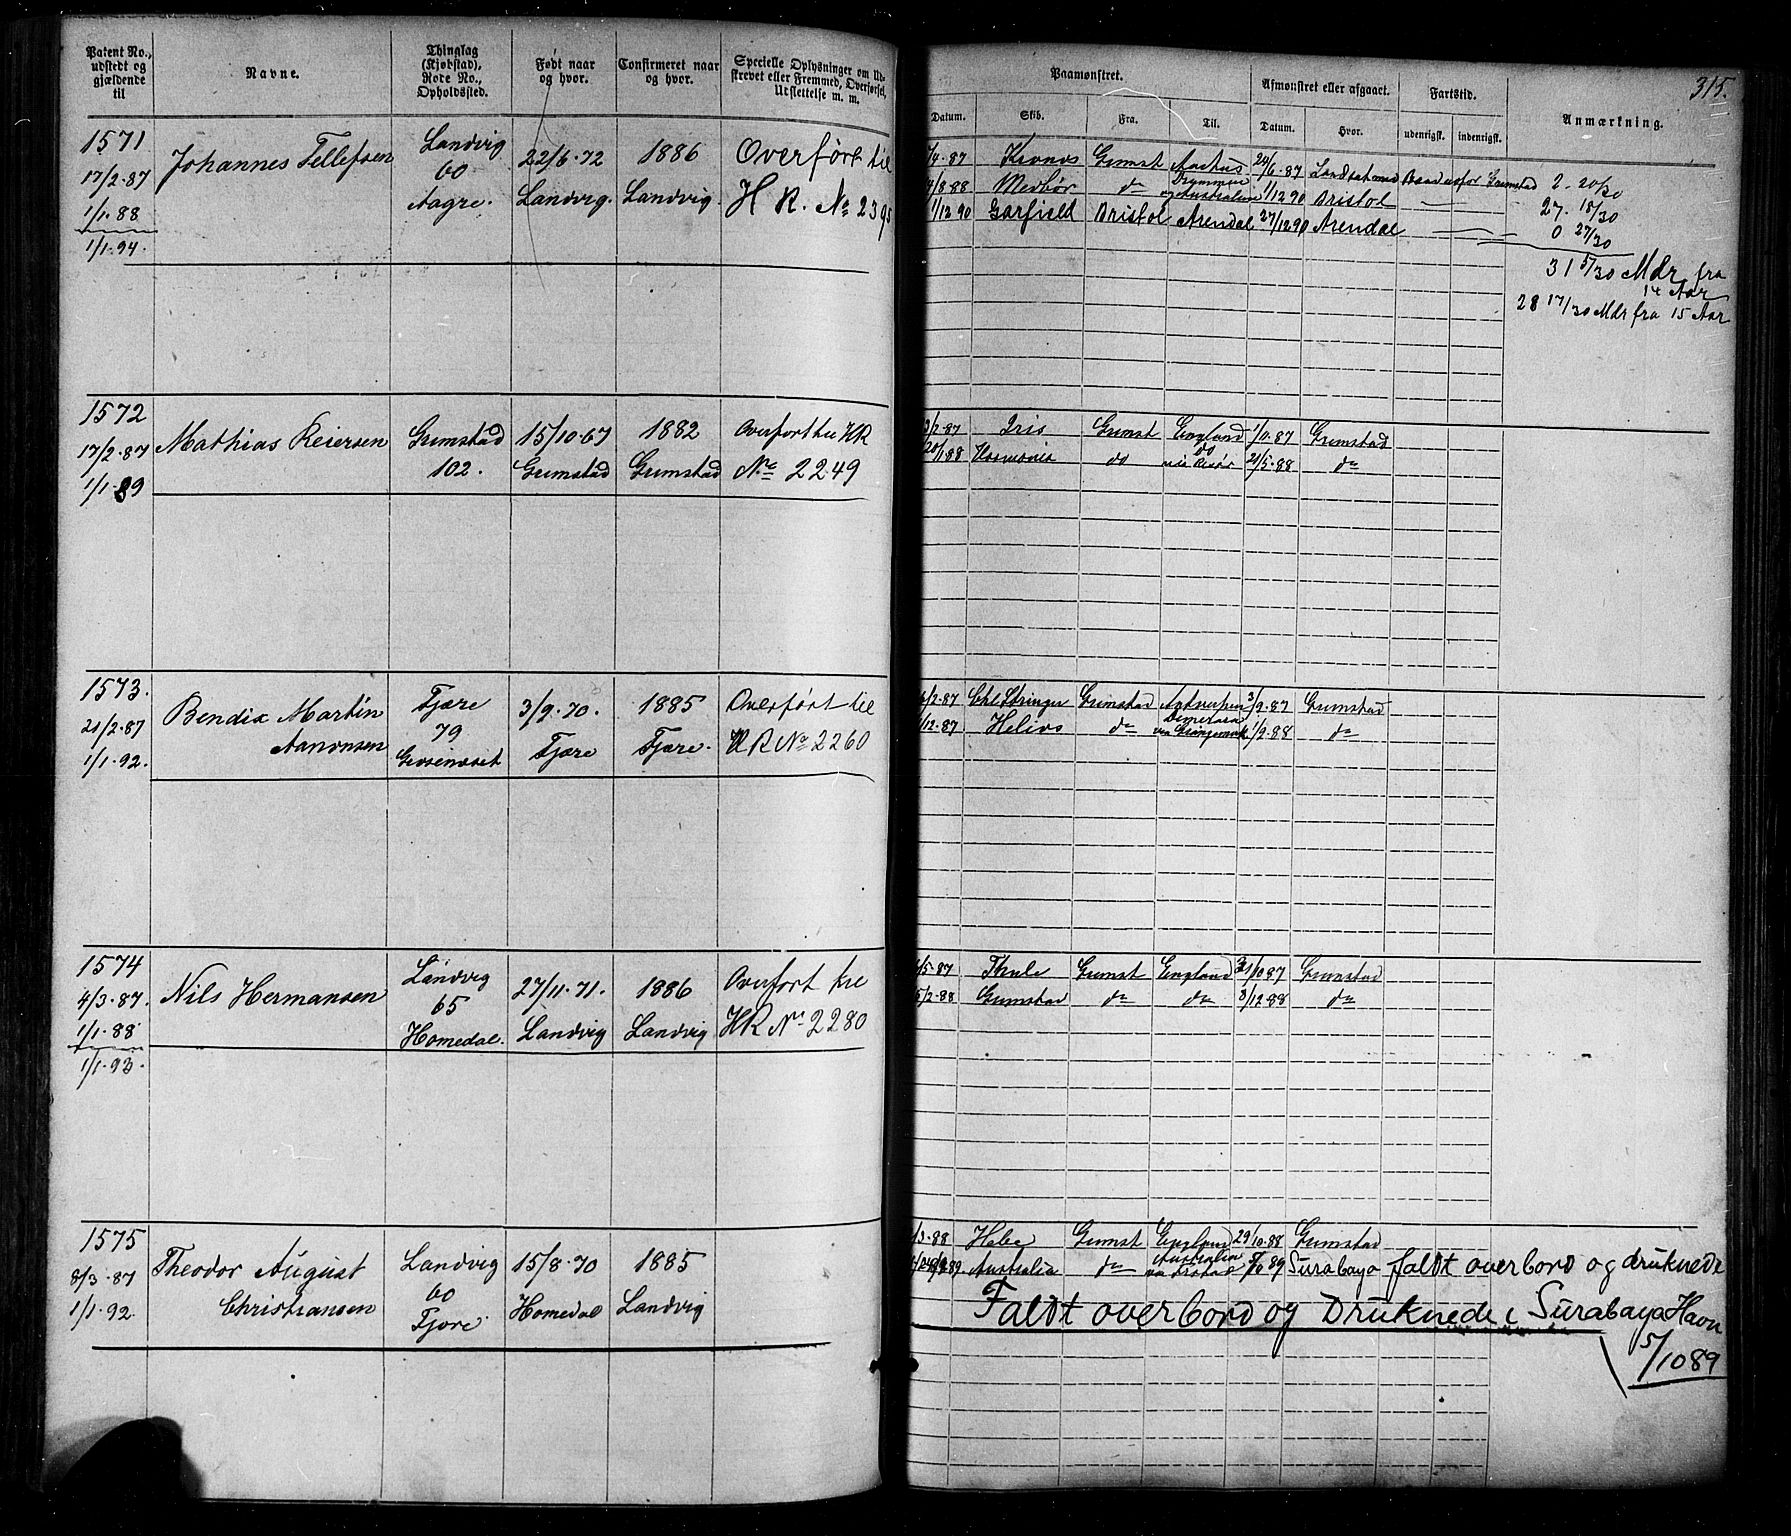 Patent No., udstedt og gjældende til
Navne.
Thinglag (Kjøbstad), Rode No., Opholdssted.
Født naar og hvor.
Confirmeret naar og hvor.
Specielle Oplysninger om Udskrevet eller Fremmed, Overførsel, Udslettelse m. m.
Paamønstret.
Datum.
Skib.
Fra.
Til.
Afmønstret eller afgaaet.
Datum.
Hvor.
Fartstid.
udenrigst.
indenrigst.
Anmærkning.
315.
1571
17/2·87
1/1·88
1/1·94.
Johannes Tellefsen
Landvig
60
Aagre.
22/6·72
Landvig.
1886
Landvig.
Overført til
H R. No 2395
/4·87 Grimst Aarhus 24/6·87
/8·88 Medbør do 1/12 90 Bristol
1/12 90 Garfield Bristol Arendal 27/12 90 Arendal
2. 20/30
27. 18/30
0 27/30
31 5/30 Mdr fra
14 Aar
28 17/30 Mdr fra 15 Aar
1572
17/2·87
1/1·89
Mathias Reiersen
Grimstad
102.
15/10·67
Grimstad
1882
Grimstad
Overfort til HR
No 2249
/2·87 Iris Grimst England 1/11·87 Grimstad
20/1 88 Harmonia do do via Risør 21/5·88 do
1573.
21/2·87
1/1·92.
Bendix Martin
Aanonsen
Fjære
79
3/9·70.
Fjære
1885
Fjære.
Overført til
HR No 2260
/2·87 Grimstad Antwerpen 3/9·87 Grimstad
/12·87 Helios do Demerara via 1/9·88 do
1574
4/3·87.
1/1·88
1/1·93.
Nils Hermansen
Landvig
65
Homedal.
27/11·71.
Landvig
1886
Landvig
Overfort til
HR No 2280
/5·87 Thule Grimst England 31/10 87 Grimstad
5/2·88 Grimstad do do 3/12 88 do
1575
8/3·87
1/1·92.
Theodor August
Christiansen
Landvig
60
Fjøre.
15/8·70
Homedal
1885
Landvig
/3·88 Hebe Grimst England 29/10·88 Grimstad
Australia do Australia via 89 Surabaya faldt overbord og druknede
Faldt overbord og Druknede i Surabaya Havn
5/10 89